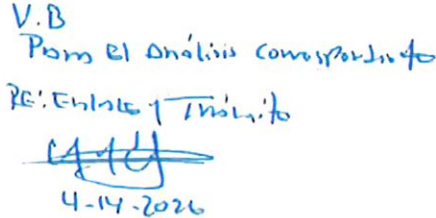 V.B
Para el análisis correspondiente
RE: Enlace y Trámite
4-14-2026